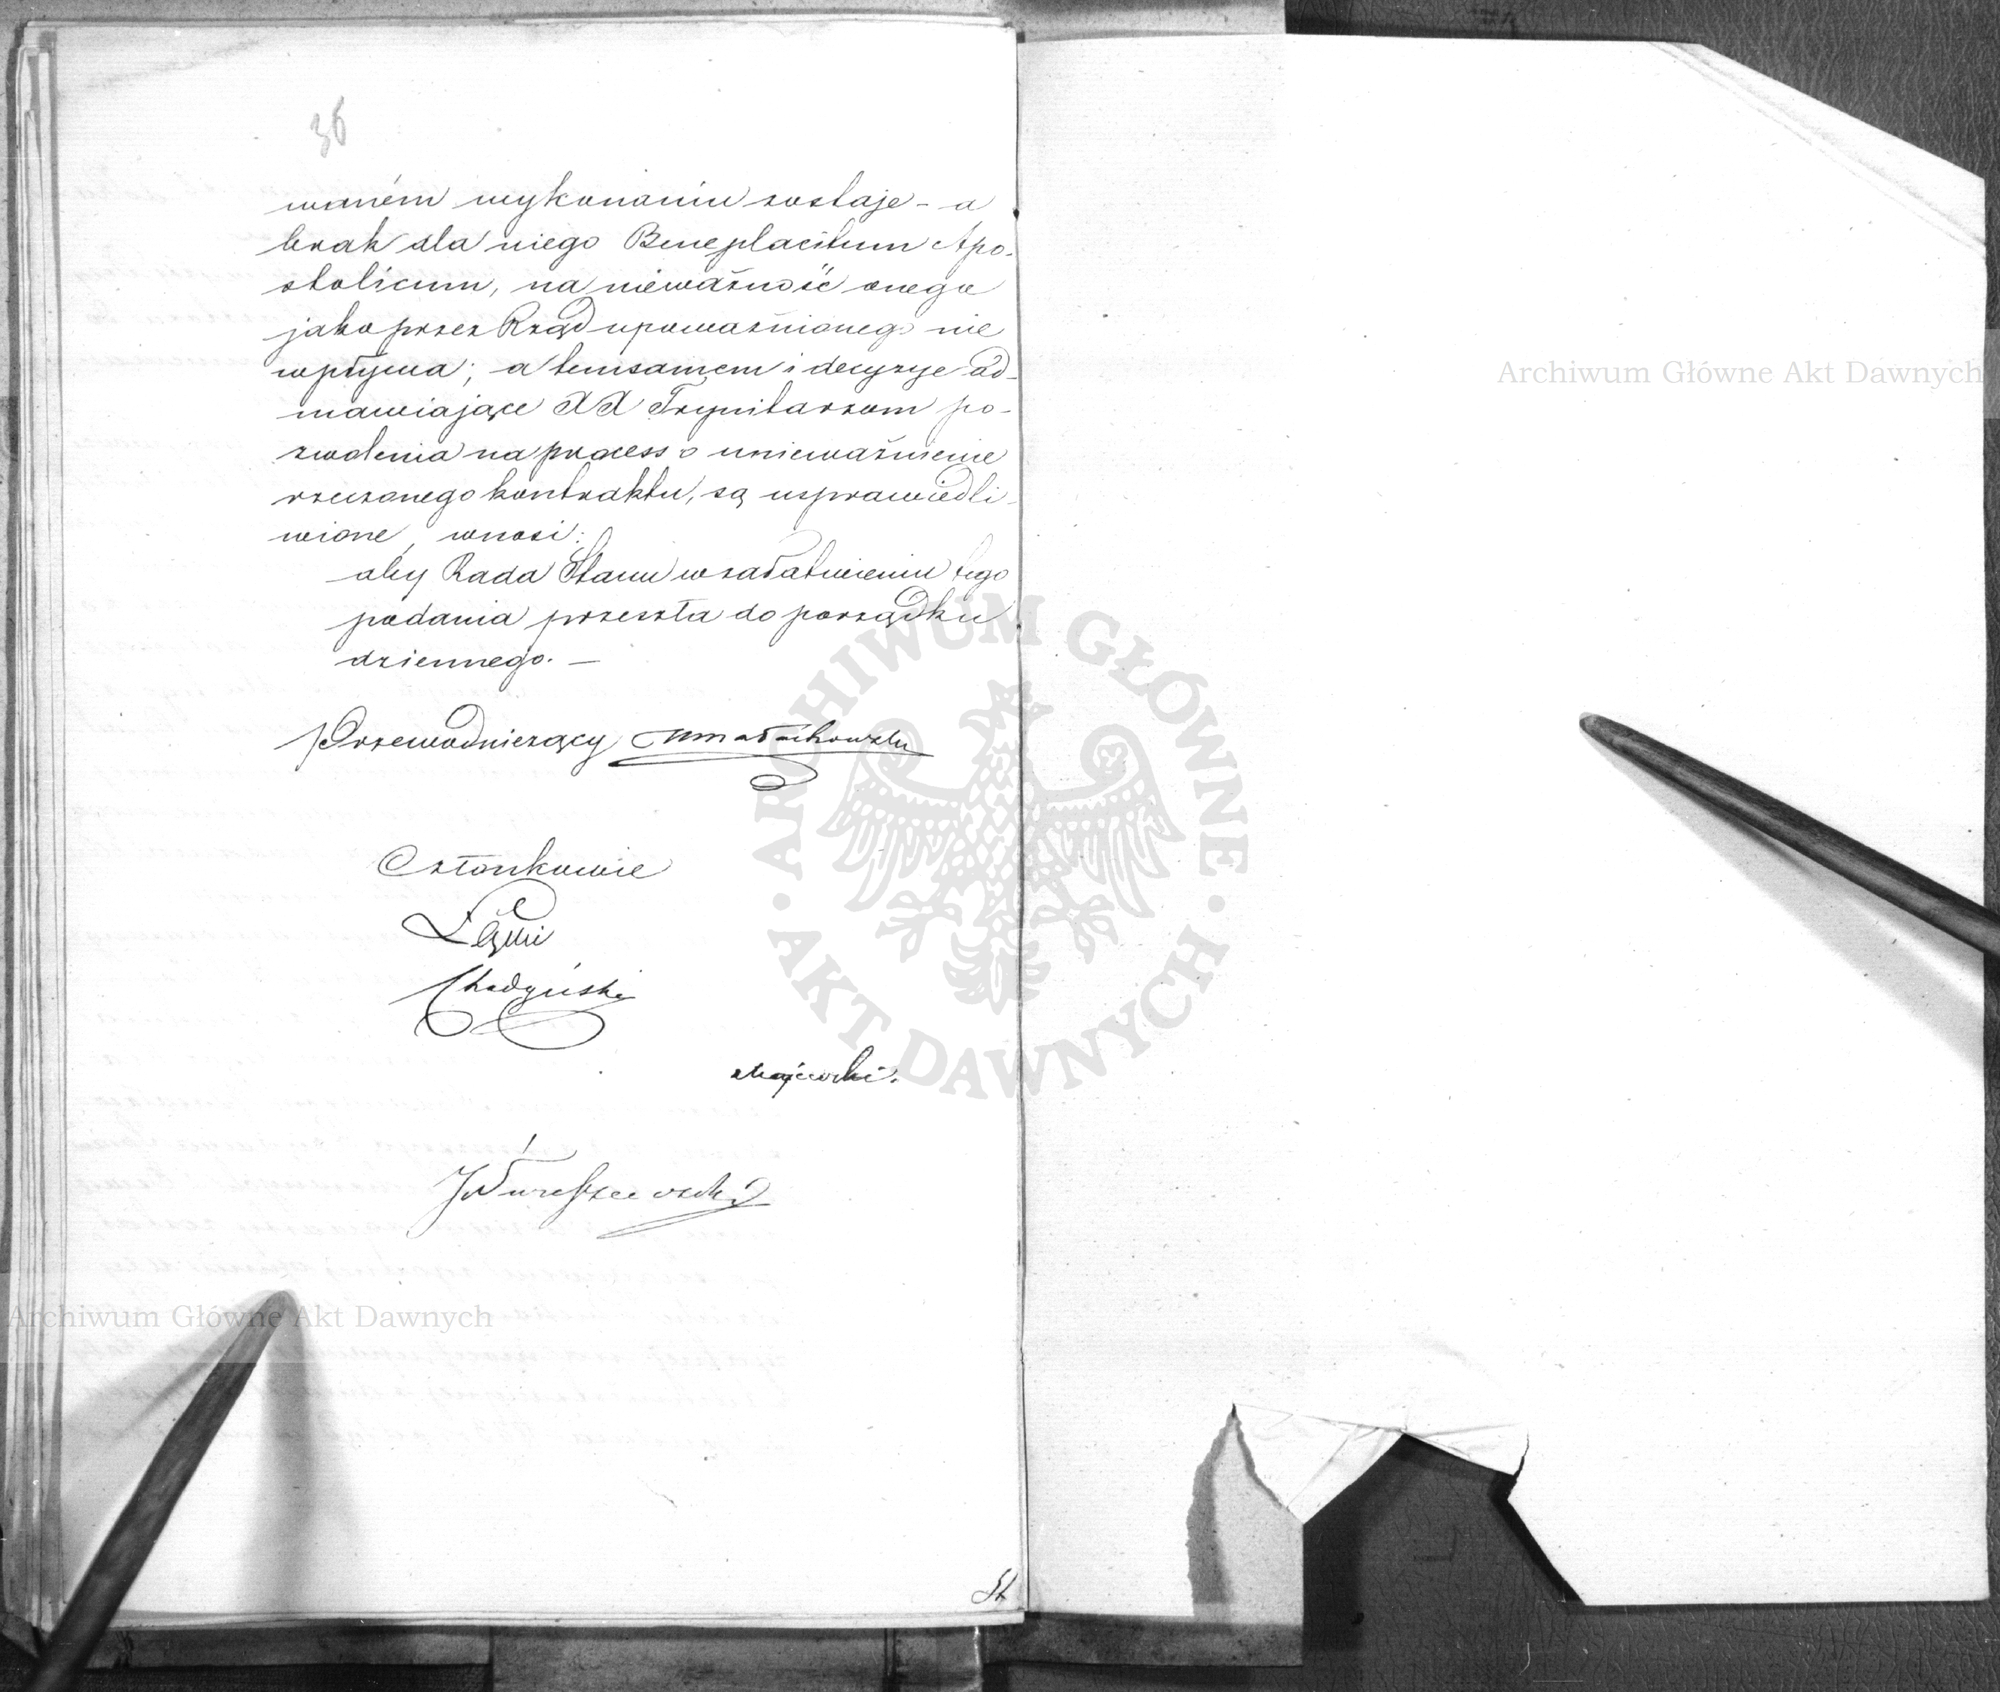 36
waném wykonaniu zostaje – a
brak dla niego Beneplacitum Apo-
stolicum, na nieważność onego
jako przez Rząd upoważnionego nie
wpływa; a temsamem i decyzye od-
mawiające XX Trynitarzom po-
zwolenia na process o unieważnienie
rzeczonego kontraktu, są usprawiedli-
wione, wnosi:
aby Rada Stanu w załatwieniu tego
podania przeszła do porządku
dziennego. —
Przewodniczący Małachowski
Członkowie
Łęski
Chądzyński
Majewski.
Archiwum Główne Akt Dawnych
Archiwum Główne Akt Dawnych
ARCHIWUM GŁÓWNE · AKT DAWNYCH ·